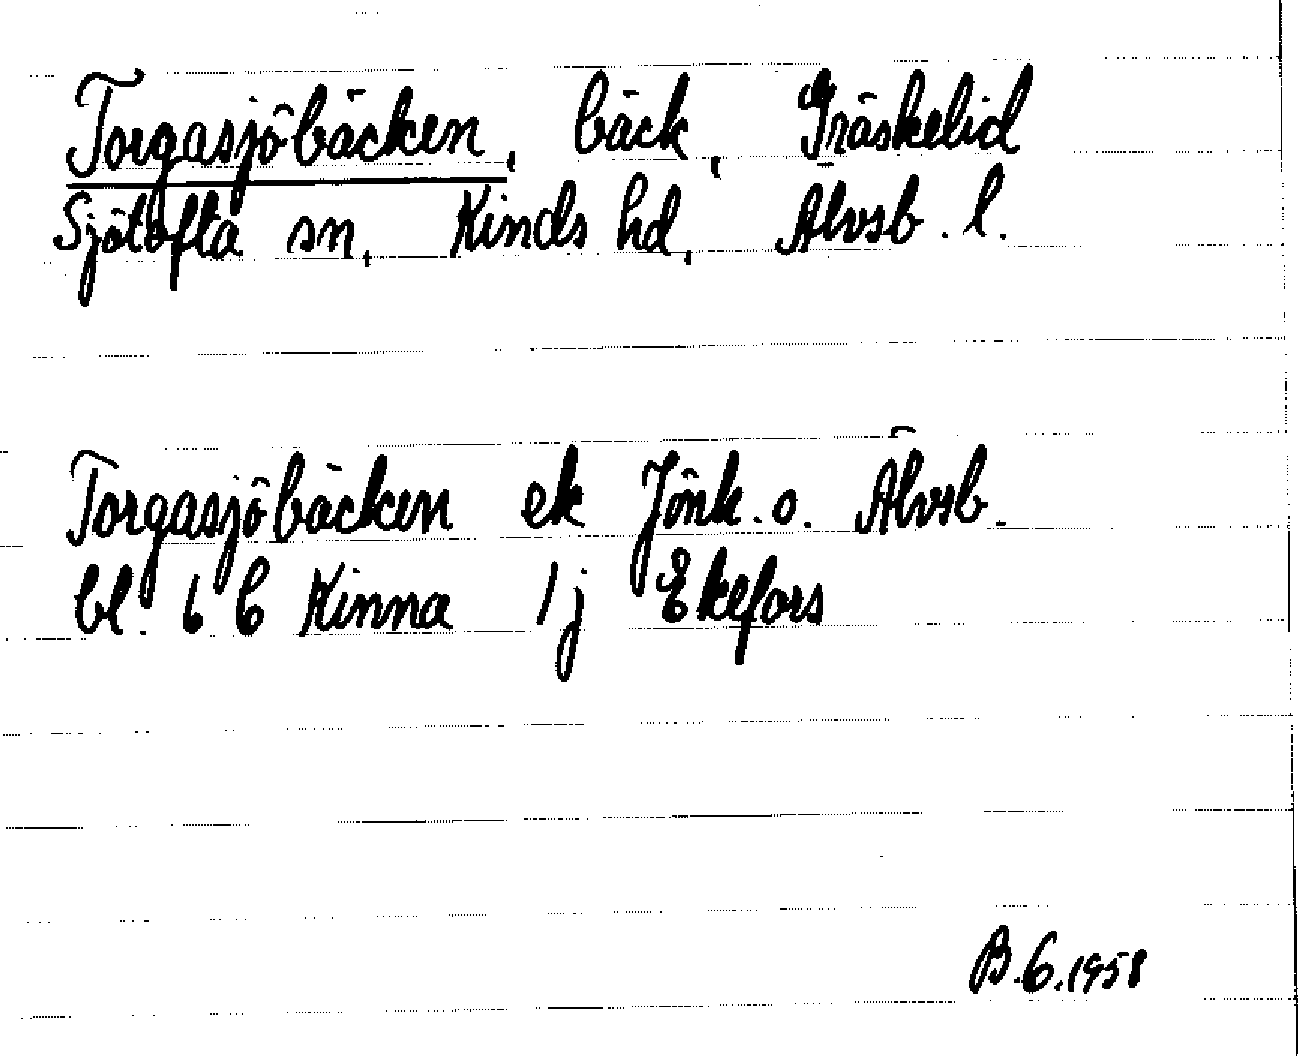 Torgasjöbäcken, bäck, Gräskelid
Sjötofta sn, Kinds hd, Älvsb. l.
Torgasjöbäcken ek Jönk. o. Älvsb.
bl. 6 C Kinna 1 j Ekefors
B.G. 1958